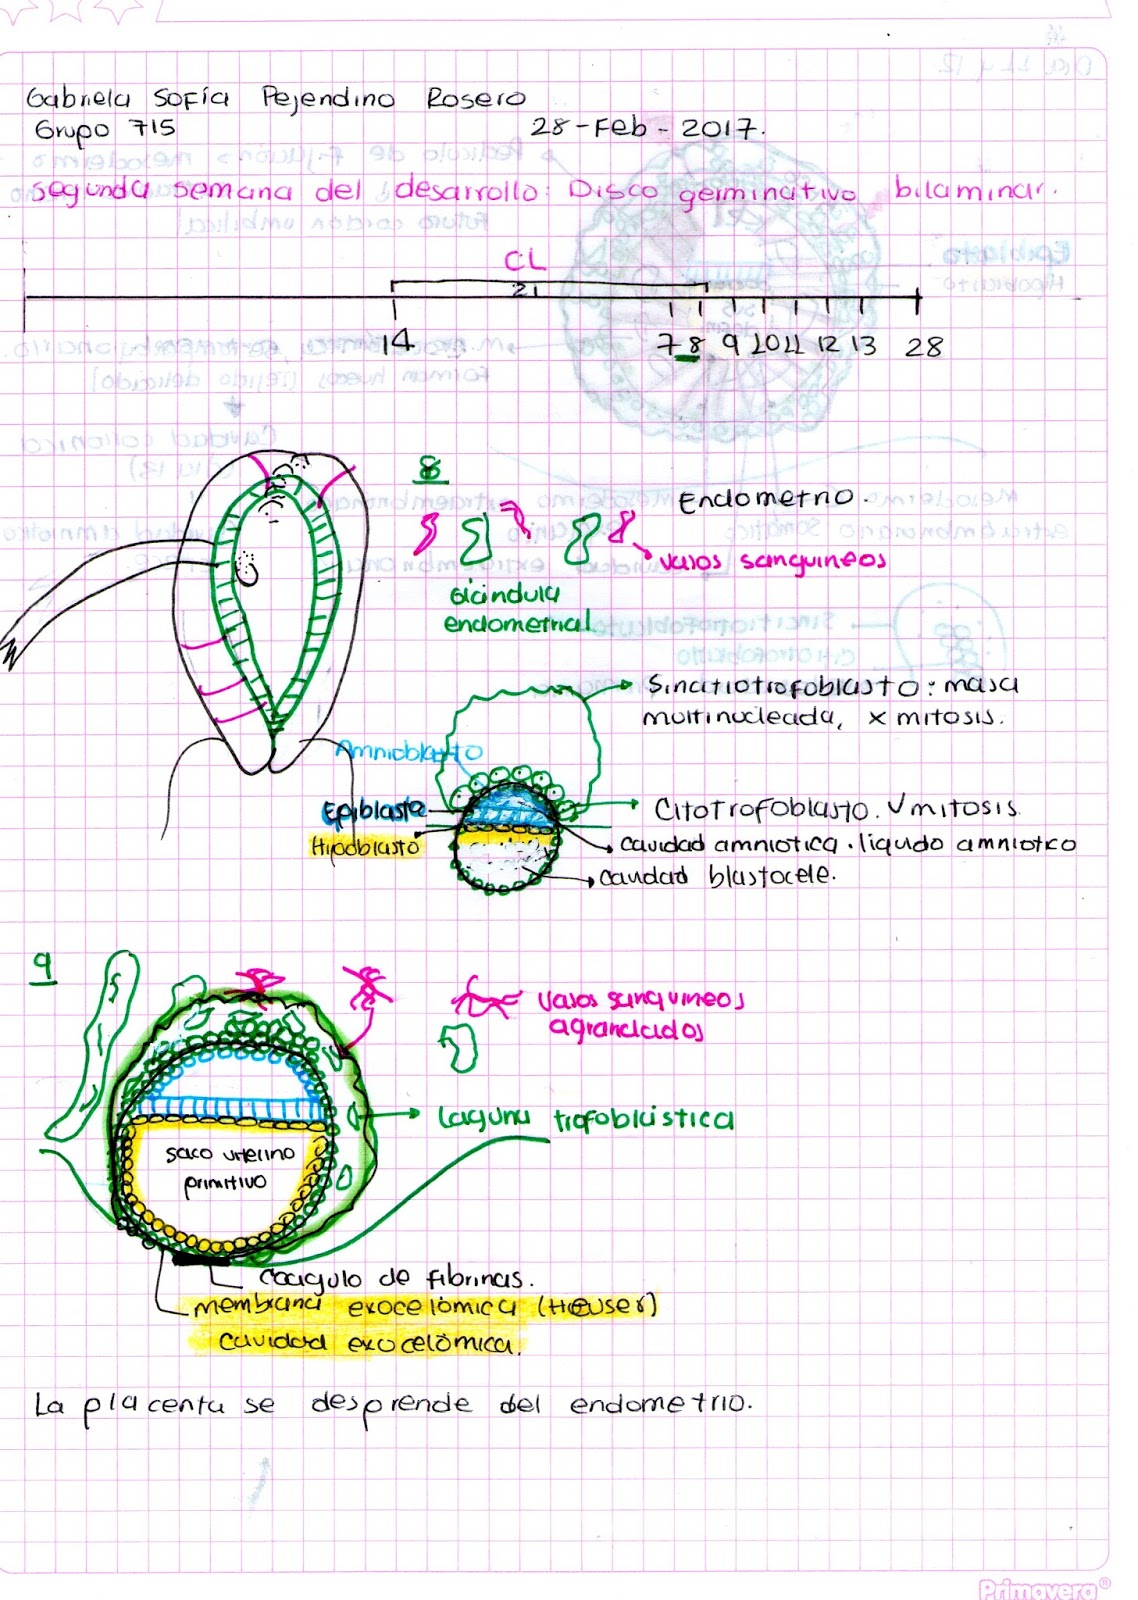 Gabriela Sofía Pejendino Rosero
Grupo 715
28-Feb-2017.
segunda semana del desarrollo: Disco germinativo bilaminar.
CL
21
14
7 8 9 10 11 12 13 28
8
Endometrio.
vasos sanguineos
Glándula
endometrial
Sincitiotrofoblasto: masa
multinucleada, x mitosis.
Amnioblasto
Epiblasto
Citotrofoblasto. √ mitosis.
Hipoblasto
cavidad amniotica. liquido amniotico
cavidad blastocele.
9
vasos sanguineos
agrandados
laguna trofoblástica
saco vitelino
primitivo
Coagulo de fibrinas.
membrana exocelómica (Heuser)
cavidad exocelómica.
La placenta se desprende del endometrio.
Primavera®